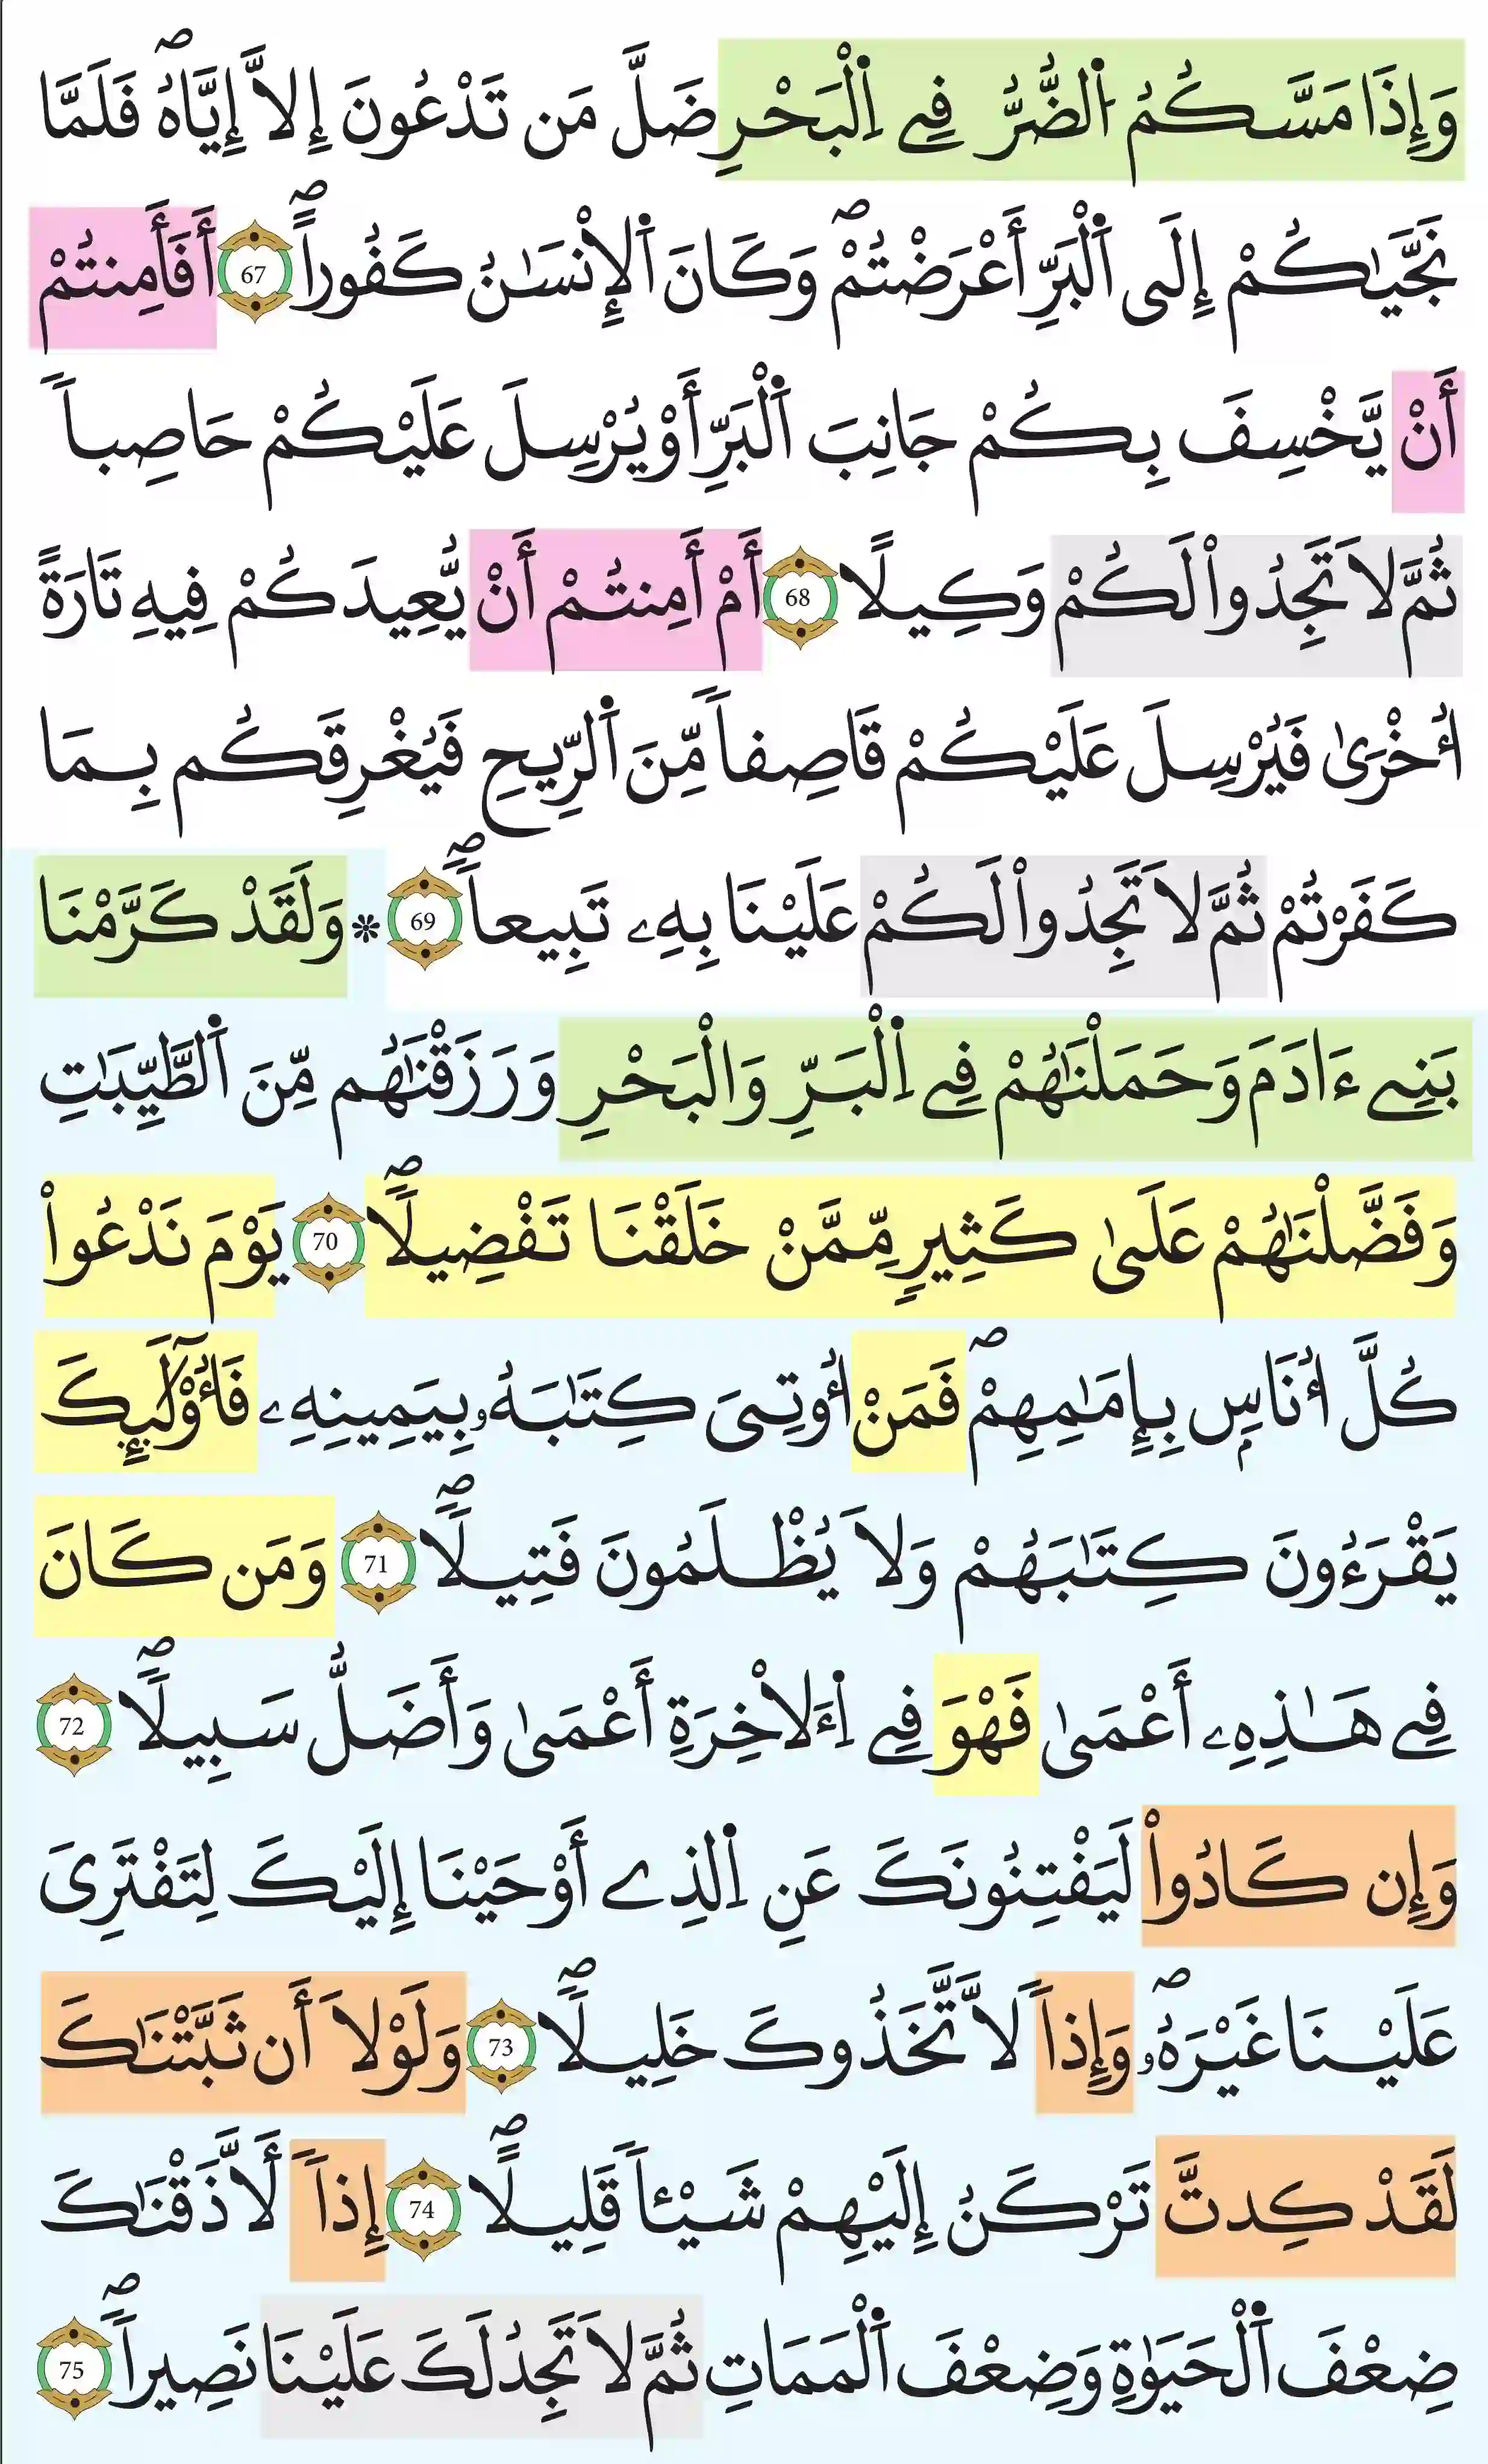 وَإِذَا مَسَّكُمُ اُ۬لضُّرُّ فِے اِ۬لْبَحْرِ ضَلَّ مَن تَدْعُونَ إِلَّآ إِيَّاهُۖ فَلَمَّا
نَجَّيٰكُمْ إِلَى اَ۬لْبَرِّ أَعْرَضْتُمْۖ وَكَانَ اَ۬لْإِنْسَٰنُ كَفُوراًۖ 67 أَفَأَمِنتُمْ
أَنْ يَّخْسِفَ بِكُمْ جَانِبَ اَ۬لْبَرِّ أَوْ يُرْسِلَ عَلَيْكُمْ حَاصِباً
ثُمَّ لَا تَجِدُواْ لَكُمْ وَكِيلًا 68 أَمْ أَمِنتُمْ أَنْ يُّعِيدَكُمْ فِيهِ تَارَةً
أُخْرَىٰ فَيُرْسِلَ عَلَيْكُمْ قَاصِفاً مِّنَ اَ۬لرِّيحِ فَيُغْرِقَكُم بِمَا
كَفَرْتُمْ ثُمَّ لَا تَجِدُواْ لَكُمْ عَلَيْنَا بِهِۦ تَبِيعاًۖ 69 * وَلَقَدْ كَرَّمْنَا
بَنِے ءَادَمَ وَحَمَلْنَٰهُمْ فِے اِ۬لْبَرِّ وَالْبَحْرِ وَرَزَقْنَٰهُم مِّنَ اَ۬لطَّيِّبَٰتِ
وَفَضَّلْنَٰهُمْ عَلَىٰ كَثِيرٍ مِّمَّنْ خَلَقْنَا تَفْضِيلًاۖ 70 يَوْمَ نَدْعُواْ
كُلَّ أُنَاسِۢ بِإِمَٰمِهِمْۖ فَمَنْ أُوتِيَ كِتَٰبَهُۥ بِيَمِينِهِۦ فَأُوْلَٰٓئِكَ
يَقْرَءُونَ كِتَٰبَهُمْ وَلَا يُظْلَمُونَ فَتِيلًاۖ 71 وَمَن كَانَ
فِے هَٰذِهِۦ أَعْمَىٰ فَهْوَ فِے اِ۬لَأخِرَةِ أَعْمَىٰ وَأَضَلُّ سَبِيلًاۖ 72
وَإِن كَادُواْ لَيَفْتِنُونَكَ عَنِ اِ۬لذِے أَوْحَيْنَا إِلَيْكَ لِتَفْتَرِيَ
عَلَيْنَا غَيْرَهُۥۖ وَإِذاً لَّاتَّخَذُوكَ خَلِيلًاۖ 73 وَلَوْلَا أَن ثَبَّتْنَٰكَ
لَقَدْ كِدتَّ تَرْكَنُ إِلَيْهِمْ شَيْـٔاً قَلِيلًاۖ 74 إِذاً لَّأَذَقْنَٰكَ
ضِعْفَ اَ۬لْحَيَوٰةِ وَضِعْفَ اَ۬لْمَمَاتِ ثُمَّ لَا تَجِدُ لَكَ عَلَيْنَا نَصِيراًۖ 75